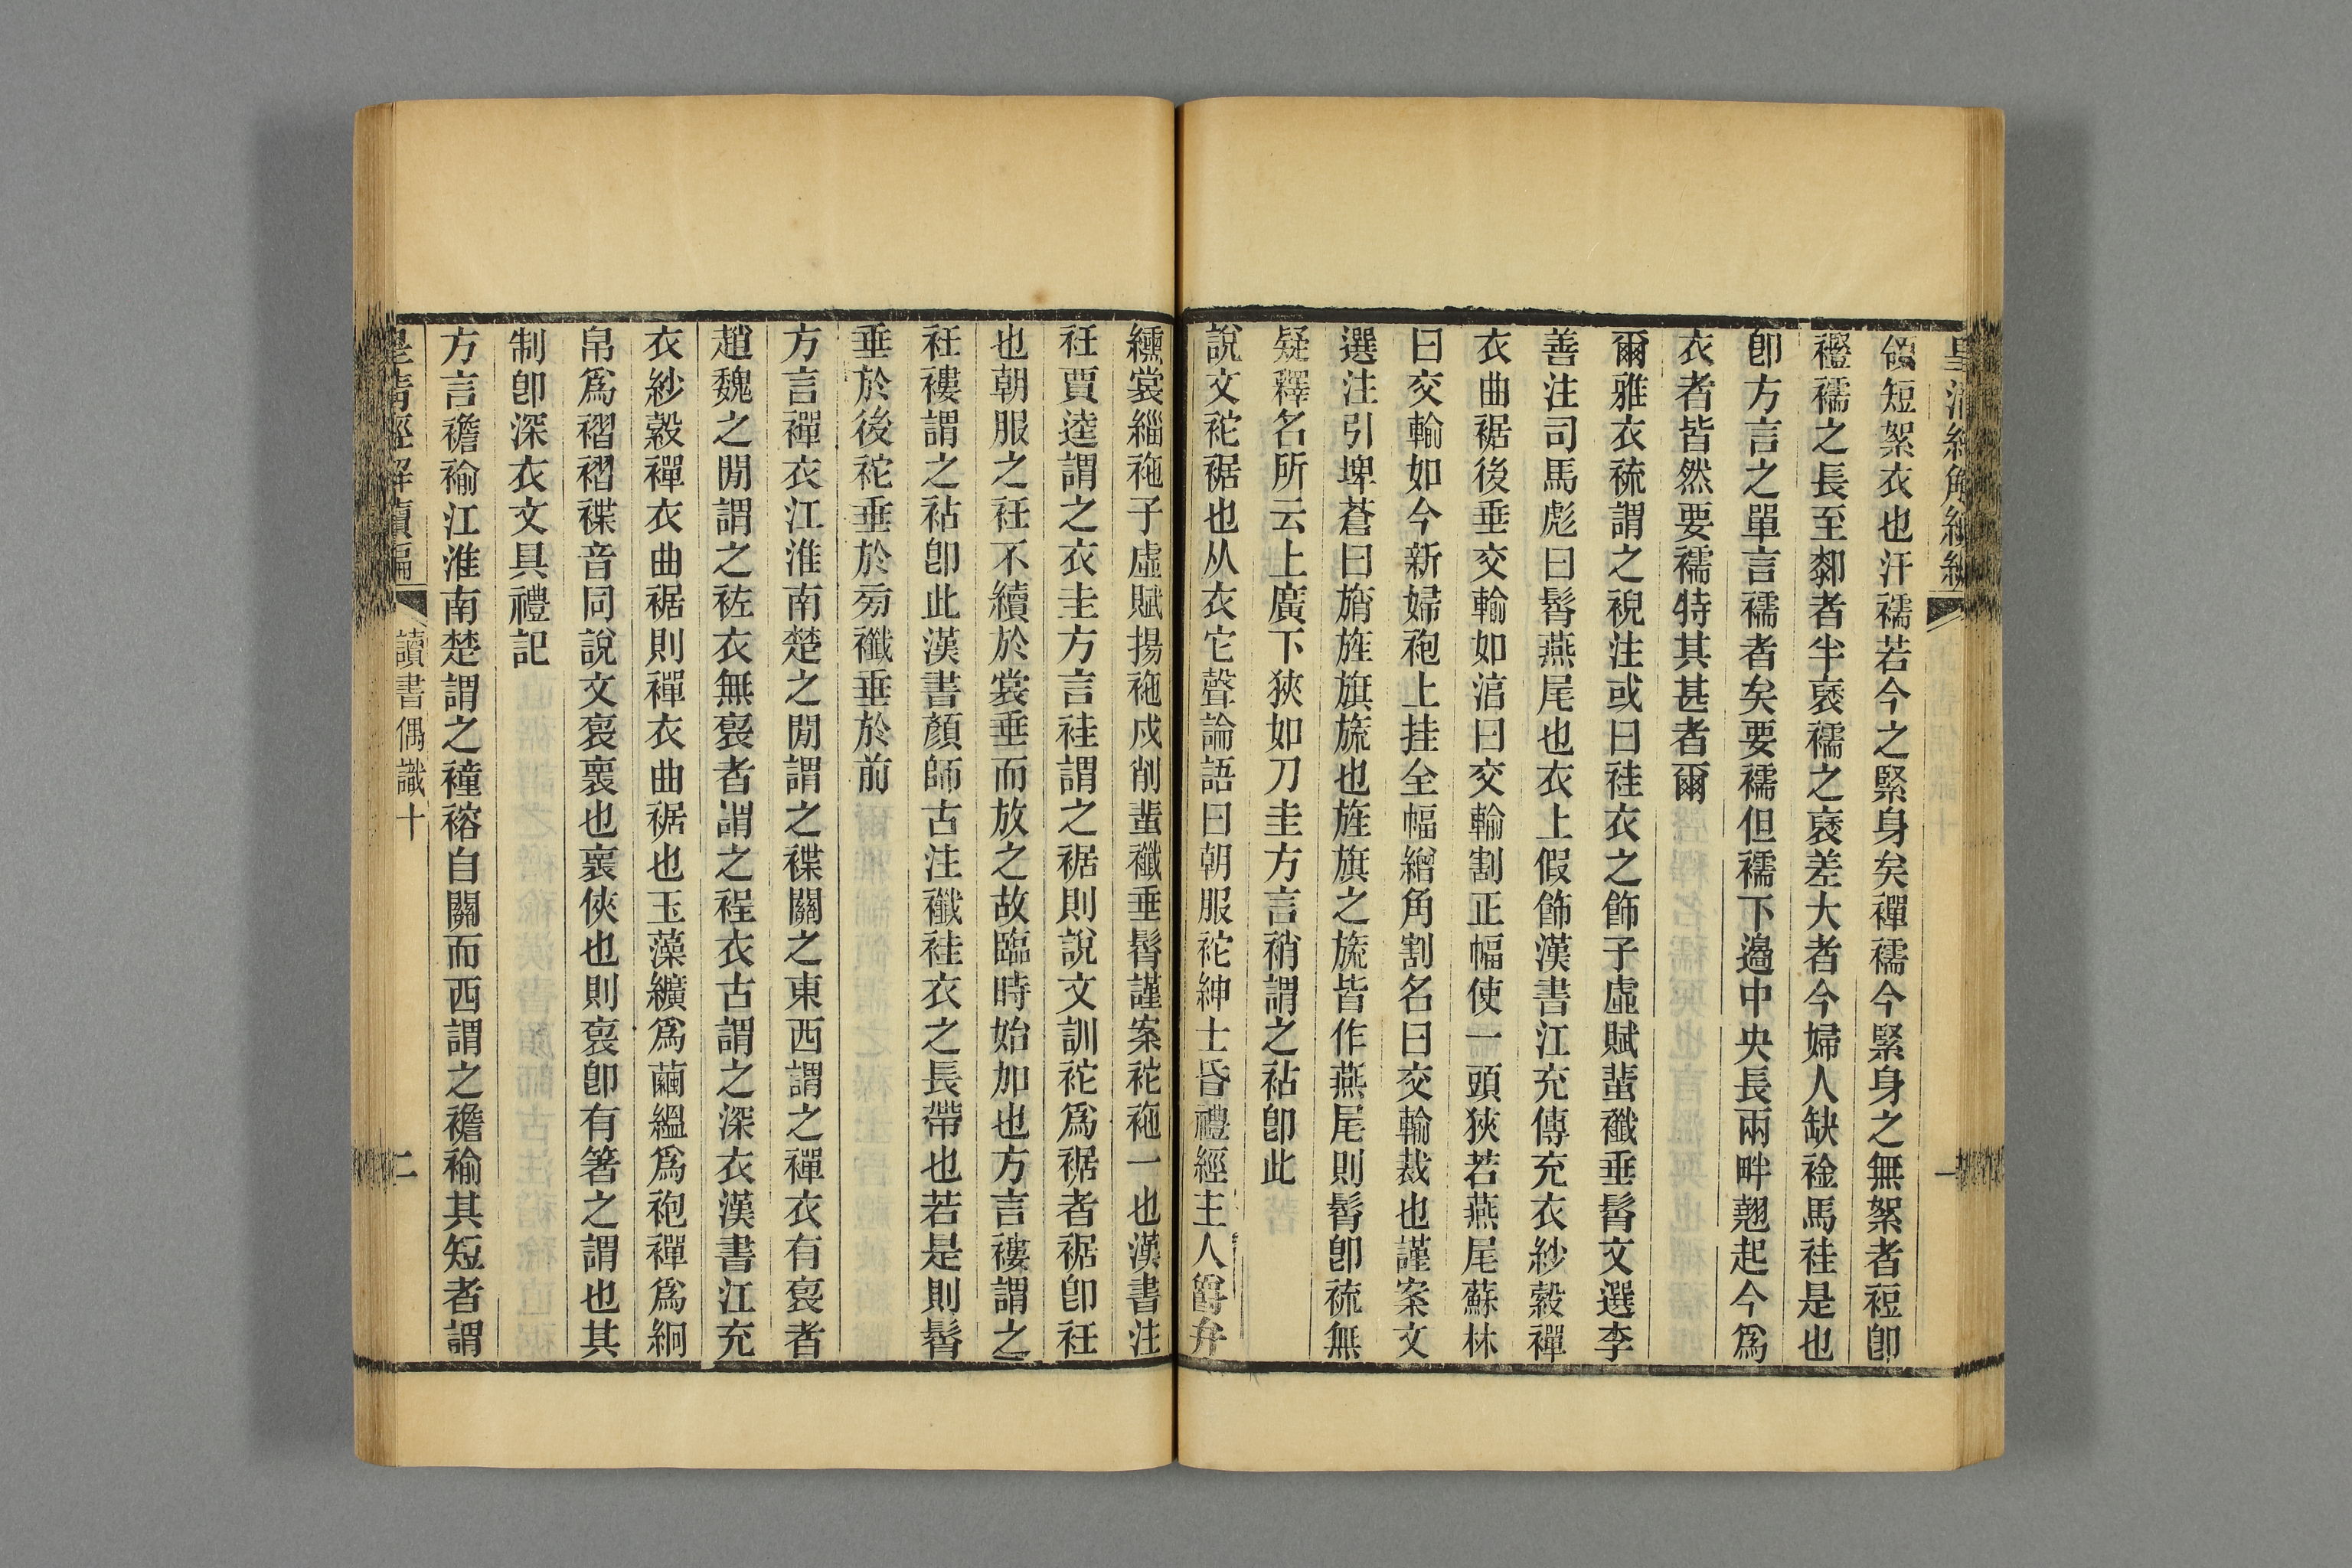 領短絮衣也汗襦若今之緊身矣襌襦今緊身之無絮者裋卽
襦之長至厀者半袤襦之袤差大者今婦人缺䘳馬袿是也
卽方言之單言襦者矣要襦但襦下邊中央長兩畔翹起今爲
衣者皆然要襦特其甚者爾
爾雅衣裗謂之䙏注或曰袿衣之飾子虛賦蜚襳垂髾文選李
善注司馬彪曰髾燕尾也衣上假飾漢書江充傳充衣紗縠襌
衣曲裾後垂交輸如湻曰交輸割正幅使一頭狹若燕尾蘇林
曰交輸如今新婦袍上挂全幅繒角割名曰交輸裁也謹案文
選注引埤蒼曰旓旌旗旒也旌旗之旒皆作燕尾則髾卽裗無
疑釋名所云上廣下狹如刀圭方言䘯謂之袩卽此
說文袉裾也从衣它聲論語曰朝服袉紳士昏禮經主人爵弁
纁裳緇袘子虛賦揚袘戌削蜚襳垂髾謹案袉袘一也漢書注
衽賈逵謂之衣圭方言袿謂之裾則說文訓袉爲裾者裾卽衽
也朝服之衽不續於裳垂而放之故臨時始加也方言褸謂之
衽褸謂之袩卽此漢書顏師古注襳袿衣之長帶也若是則髾
垂於後袉垂於旁襳垂於前
方言襌衣江淮南楚之閒謂之褋關之東西謂之襌衣有裦者
趙魏之閒謂之袏衣無裦者謂之裎衣古謂之深衣漢書江充
衣紗縠襌衣曲裾則襌衣曲裾也玉藻纊爲繭縕爲袍襌爲絅
帛爲褶褶褋音同說文裦褱也褱俠也則裦卽有箸之謂也其
制卽深衣文具禮記
方言襜褕江淮南楚謂之䆹褣自關而西謂之襜褕其短者謂
皇清經解續編
讀書偶識十
二